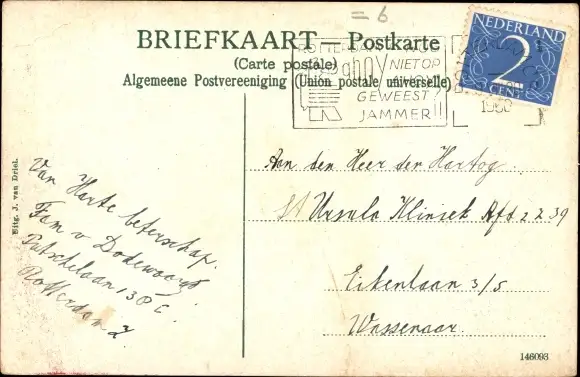 = 6
BRIEFKAART — Postkarte
(Carte postale)
Algemeene Postvereeniging (Union postale universelle)
NEDERLAND
2
CENT
ROTTERDAM NOG
ahoy NIET OP
GEWEEST?
JAMMER!!
1960
Uitg. J. van Driel.
Van Harte beterschap.
Fam v Dodewaard
Putschelaan 138 C
Rotterdam Z
Aan den Heer den Hartog
St Ursula Kliniek Afd 2 Z 39
Eikenlaan 3/5
Wassenaar.
146093